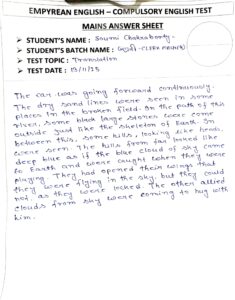 EMPYREAN ENGLISH – COMPULSORY ENGLISH TEST
MAINS ANSWER SHEET
➤ STUDENT'S NAME : Soumi Chakraborty.
➤ STUDENT'S BATCH NAME : -CLERK MAIN
➤ TEST TOPIC : Translation
➤ TEST DATE : 13/11/25
The car was going forward continuously.
The dry sand lines were seen in some
places in the broken field. In the path of this
river, some black large stones were come
outside just like the skeleton of Earth. In
between this, some hills, looking like heads,
were seen. The hills from far looked like
deep blue as if the blue cloud of sky came
to Earth and were caught when they were
playing. They had opened their wings that
they were flying in the sky, but they could
not, as they were locked. The other allied
clouds from sky were coming to hug with
him.